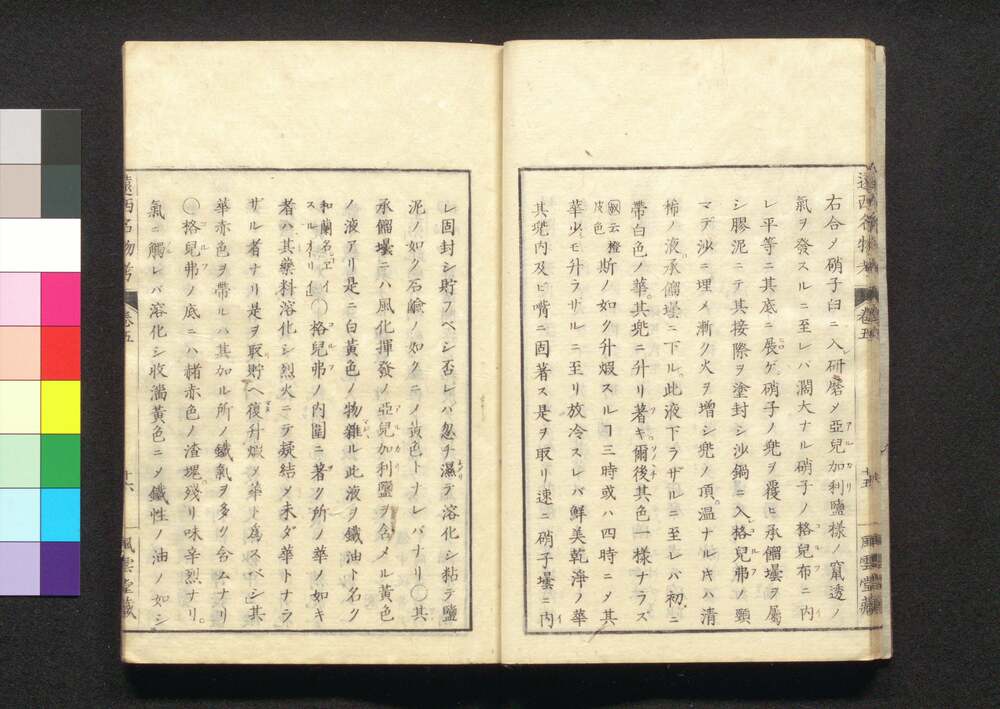 右合ノ硝子臼ニ入研磨メ亞兒加利鹽樣ノ竄透ノ
氣ヲ發スルニ至レバ濶大ナル硝子ノ格兒布ニ内
レ平等ニ其底ニ展ゲ硝子ノ兜ヲ覆ヒ承餾壜ヲ屬
シ膠泥ニテ其接際ヲ塗封シ沙鍋ニ入格兒弗ノ頸
マデ沙ニ埋メ漸ク火ヲ增シ兜ノ頂溫ナルキハ清
稀ノ液承餾壜ニ下ル此液下ラザルニ至レバ初ニ
帶白色ノ華其兜ニ升リ著キ爾後其色一樣ナラズ
斯ノ如ク升煆スルヿ三時或ハ四時ニメ其
華少モ升ラザルニ至リ放冷スレバ鮮美乾淨ノ華
其兜内及ビ嘴ニ固著ス是ヲ取リ速ニ硝子壜ニ内
卷五
風雲堂藏
レ固封シ貯フベシ否レバ忽チ濕テ溶化シ粘テ鹽
泥ノ如ク石鹼ノ如クニメ黄色トナレバナリ○其
承餾壜ニハ風化揮發ノ亞兒加利鹽ヲ含メル黄色
ノ液アリ是ニ白黄色ノ物雜ル此液ヲ鐵油ト名ク
○格兒弗ノ内圍ニ著ク所ノ華ノ如キ
者ハ其藥料溶化シ烈火ニテ凝結メ未ダ華トナラ
ザル者ナリ是ヲ取貯ヘ復升煆メ華ト爲スベシ其
華赤色ヲ帶ルハ其加ル所ノ鐵氣ヲ多ク含ムナリ
○格兒弗ノ底ニハ赭赤色ノ渣塊殘リ味辛烈ナリ
氣ニ觸レバ溶化シ收濇黄色ニメ鐵性ノ油ノ如シ
遠西名物考
卷五
十六
風雲堂藏